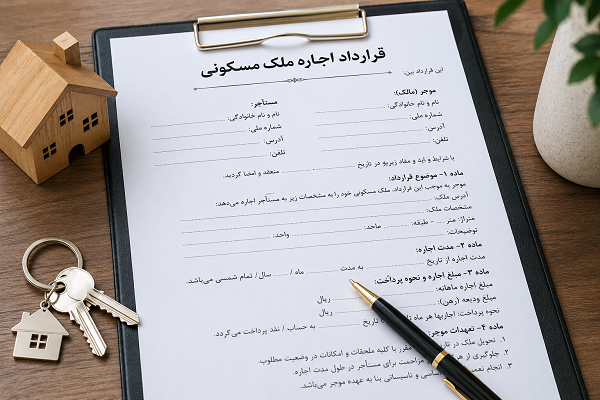 قرارداد اجاره ملک مسکونی
این قرارداد بین:
موجر (مالک):
نام و نام خانوادگی:
شماره ملی:
آدرس:
تلفن:
مستأجر:
نام و نام خانوادگی:
شماره ملی:
آدرس:
تلفن:
با شرایط و اید و مفاد زیریو در تاریخ منعقد و امضا گردید.
ماده ۱- موضوع قرارداد:
موجر به موجب این قرارداد، ملک مسکونی خود را به مشخصات زیر به مستأجر اجاره می‌دهد:
آدرس ملک:
مشخصات ملک:
متراژ: متر - طبقه: ماحد: واحد:
توضیحات:
ماده ۲- مدت اجاره:
مدت اجاره از تاریخ به مدت ماه / سال / تمام شمسی می‌باشد.
ماده ۳- مبلغ اجاره و نحوه پرداخت:
مبلغ اجاره ماهانه: ریال
مبلغ ودیعه (رهن): ریال
نحوه پرداخت: اجاریها هر ماه تاریخ به حساب / نقد پرداخت می‌گردد.
ماده ۴- تعهدات موجر:
۱. تحویل ملک در مقرر با کلیه ملحقات و امکانات در وضعیت مطلوب.
۲. جلوگیری از مزاحمت برای مستأجر در طول مدت اجاره.
۳. انجام اساسی و تاسیساتی بنا به عهده موجر می‌باشد.